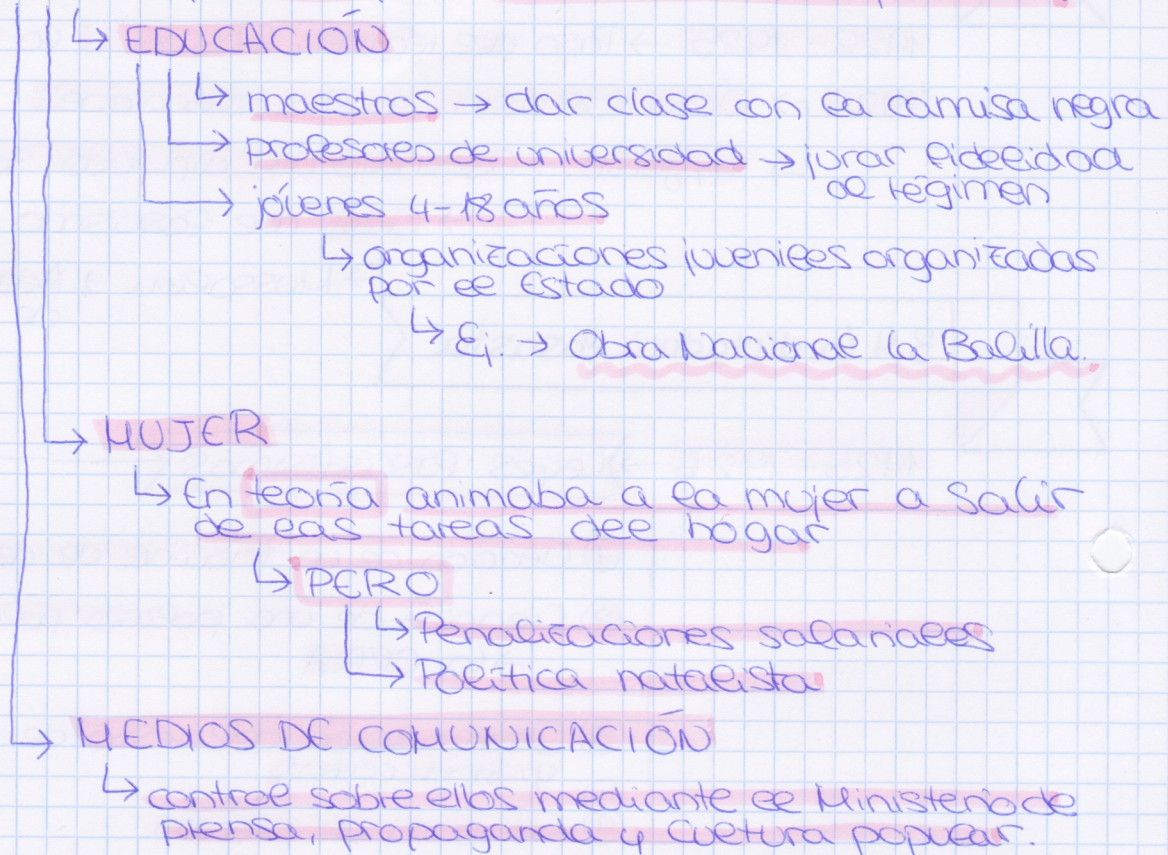 ↳ EDUCACIÓN
↳ maestros → dar clase con la camisa negra
→ profesores de universidad → jurar fidelidad
al régimen
→ jóvenes 4-18 años
↳ organizaciones juveniles organizadas
por el Estado
↳ Ej. → Obra Nacional la Balilla.
→ MUJER
↳ En teoría animaba a la mujer a salir
de las tareas del hogar
↳ PERO
↳ Penalizaciones salariales
→ Política natalista
→ MEDIOS DE COMUNICACIÓN
↳ control sobre ellos mediante el Ministerio de
prensa, propaganda y cultura popular.